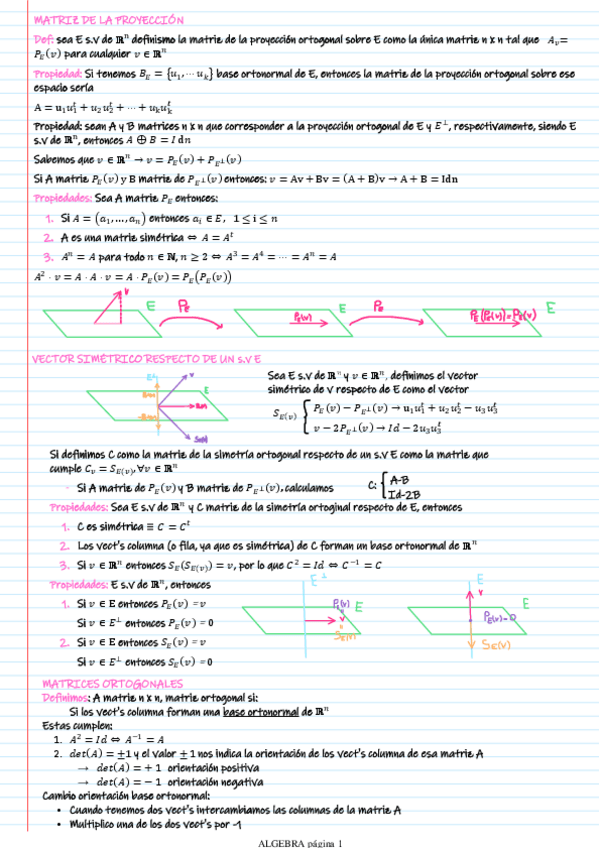 MATRIZ DE LA PROYECCIÓN
Def: sea E s.v de ℝⁿ definismo la matriz de la proyección ortogonal sobre E como la única matriz n x n tal que A_v =
P_E(v) para cualquier v ∈ ℝⁿ
Propiedad: Si tenemos B_E = {u₁,⋯u_k} base ortonormal de E, entonces la matriz de la proyección ortogonal sobre ese
espacio sería
A = u₁u₁ᵗ + u₂u₂ᵗ + ⋯ + u_ku_kᵗ
Propiedad: sean A y B matrices n x n que corresponder a la proyección ortogonal de E y E^⊥, respectivamente, siendo E
s.v de ℝⁿ, entonces A ⊕ B = I dn
Sabemos que v ∈ ℝⁿ → v = P_E(v) + P_E⊥(v)
Si A matriz P_E(v) y B matriz de P_E⊥(v) entonces: v = Av + Bv = (A + B)v → A + B = Idn
Propiedades: Sea A matriz P_E entonces:
1. Si A = (a₁,…,a_n) entonces a_i ∈ E, 1 ≤ i ≤ n
2. A es una matriz simétrica ⇔ A = Aᵗ
3. Aⁿ = A para todo n ∈ ℕ, n ≥ 2 ⇔ A³ = A⁴ = ⋯ = Aⁿ = A
A² · v = A · A · v = A · P_E(v) = P_E(P_E(v))
v E P_E P_E(v) E P_E P_E(P_E(v))=P_E(v) E
VECTOR SIMÉTRICO RESPECTO DE UN S.V E
E⊥ v E
Sea E s.v de ℝⁿ y v ∈ ℝⁿ, definimos el vector
simétrico de v respecto de E como el vector
S_E(v) { P_E(v) − P_E⊥(v) → u₁u₁ᵗ + u₂u₂ᵗ − u₃u₃ᵗ
v − 2P_E⊥(v) → Id − 2u₃u₃ᵗ
Si definimos C como la matriz de la simetría ortogonal respecto de un s.v E como la matriz que
cumple C_v = S_E(v), ∀v ∈ ℝⁿ
- Si A matriz de P_E(v) y B matriz de P_E⊥(v), calculamos C: { A-B
Id-2B
Propiedades: Sea E s.v de ℝⁿ y C matriz de la simetría ortoginal respecto de E, entonces
1. C es simétrica ≡ C = Cᵗ
2. Los vect's columna (o fila, ya que es simétrica) de C forman un base ortonormal de ℝⁿ
3. Si v ∈ ℝⁿ entonces S_E(S_E(v)) = v, por lo que C² = Id ⇔ C⁻¹ = C
Propiedades: E s.v de ℝⁿ, entonces
1. Si v ∈ E entonces P_E(v) = v
Si v ∈ E^⊥ entonces P_E(v) = 0
2. Si v ∈ E entonces S_E(v) = v
Si v ∈ E^⊥ entonces S_E(v) = 0
E⊥ P_E(v) E v S_E(v)
E v E P_E(v)=0 S_E(v)
MATRICES ORTOGONALES
Definimos: A matriz n x n, matriz ortogonal si:
Si los vect's columna forman una base ortonormal de ℝⁿ
Estas cumplen:
1. A² = Id ⇔ A⁻¹ = A
2. det(A) = ±1 y el valor ±1 nos indica la orientación de los vect's columna de esa matriz A
→ det(A) = + 1 orientación positiva
→ det(A) = − 1 orientación negativa
Cambio orientación base ortonormal:
• Cuando tenemos dos vect's intercambiamos las columnas de la matriz A
• Multiplico una de los dos vect's por -1
ALGEBRA página 1